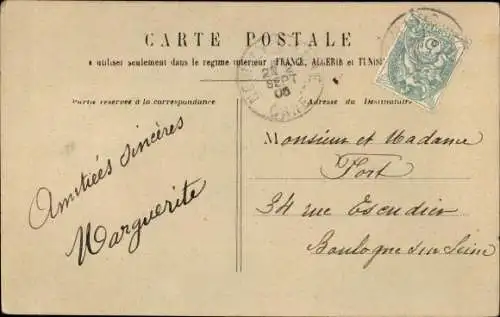 CARTE POSTALE
à utiliser seulement dans le régime intérieur (FRANCE, ALGÉRIE et TUNISIE
Partie réservée à la correspondance
Adresse du Destinataire
SEPT
06
Amitiés sincères
Marguerite
Monsieur et Madame
Port
34 rue Escudier
Boulogne sur Seine